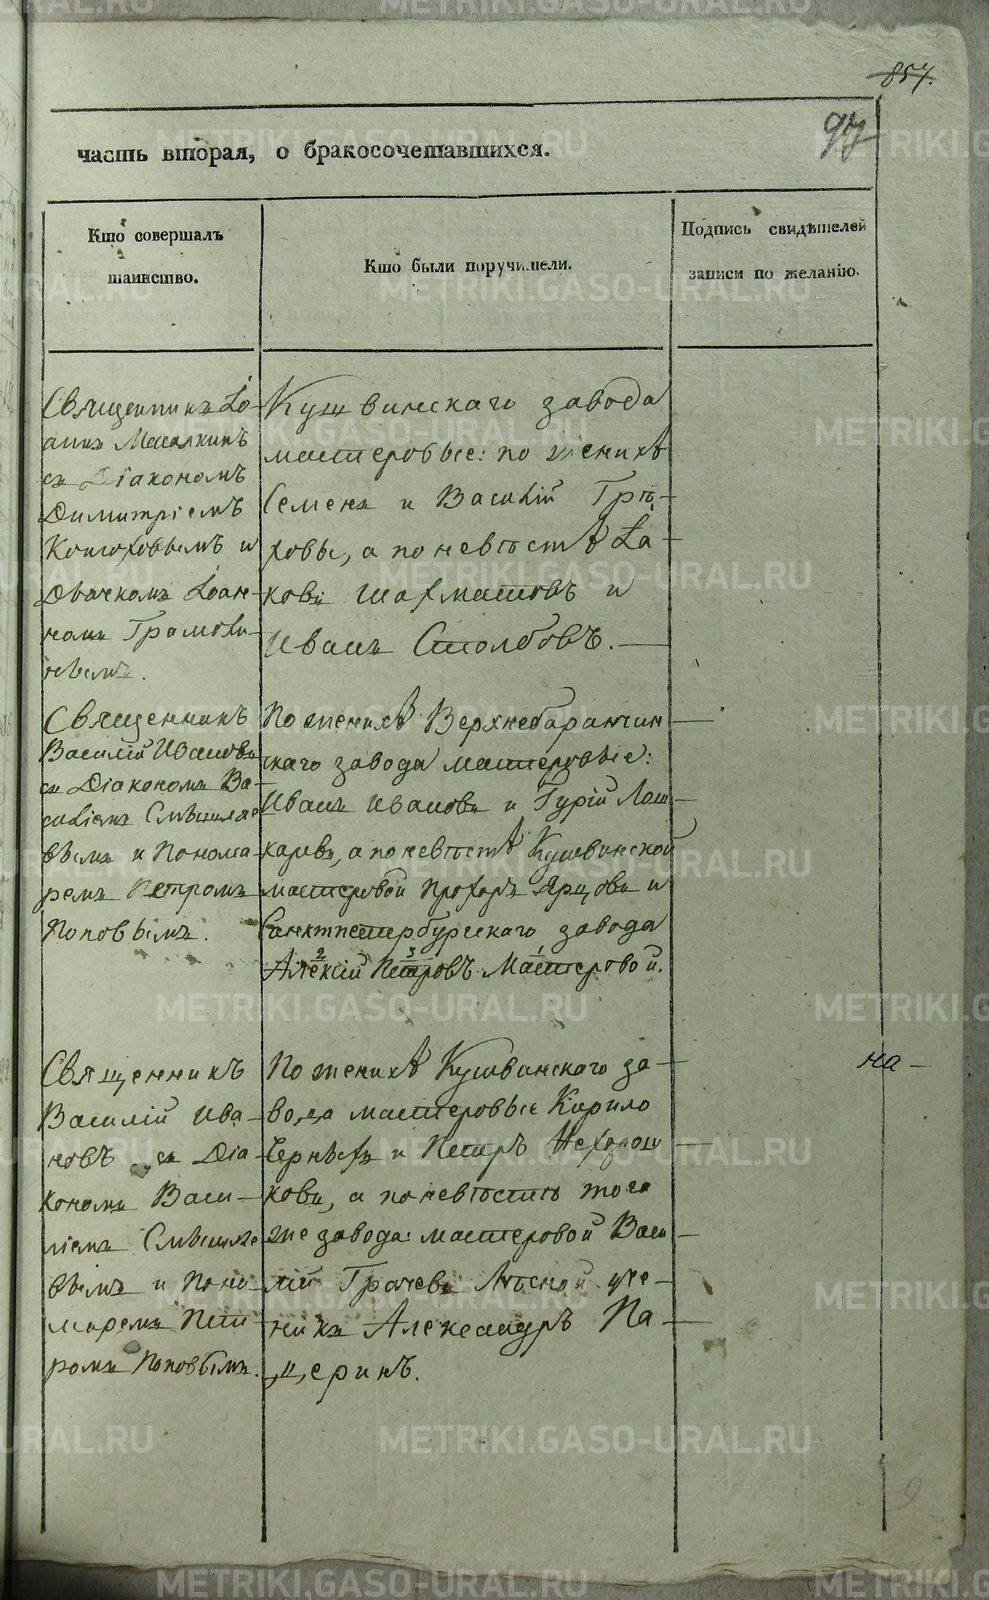 857.
часть вторая, о бракосочетавшихся.
Кто совершалъ
таинство.
Кто были поручители.
Подпись свидѣтелей
записи по желанію.
Священникъ Іо-
аннъ
съ Діакономъ
Димитріемъ
и
Дьячкомъ Іоан-
номъ
Кушвинскаго завода
мастеровые: по женихѣ
Семенъ и Василій Грѣ-
ховы, а по невѣстѣ Іа-
ковъ Шахматовъ и
Иванъ Столбовъ.
Священникъ
Василій Ивановъ
съ Діакономъ Ва-
силіемъ
вымъ и Понома-
ремъ Петромъ
Поповымъ.
По женихѣ Верхнебаранчин-
скаго завода мастеровые:
Иванъ Ивановъ и Гурій Лош-
каревъ, а по невѣстѣ Кушвинской
мастеровой Прохоръ Ярцовъ и
Санктпетербургскаго завода
2 3 1
Алексій Петровъ Мастеровой.
Священникъ
Василій Ива-
новъ съ Діа-
кономъ Васи-
ліемъ
вымъ и Поно-
маремъ Пет-
ромъ Поповымъ.
По женихѣ Кушвинскаго за-
вода мастеровые Кирило
и Петръ Нехорош
ковъ, а по невѣстѣ того
же завода: мастеровой Васи-
лій Грачевъ Лѣсной уче-
никъ Александръ Па-
церинъ.
на-
METRIKI.GASO-URAL.RU